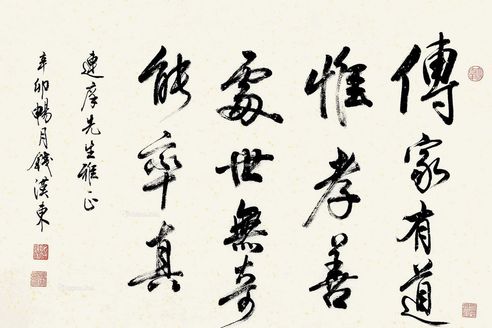 傳家有道
惟孝善
處世無奇
能率真
連序先生雅正
辛卯暢月錢漢東